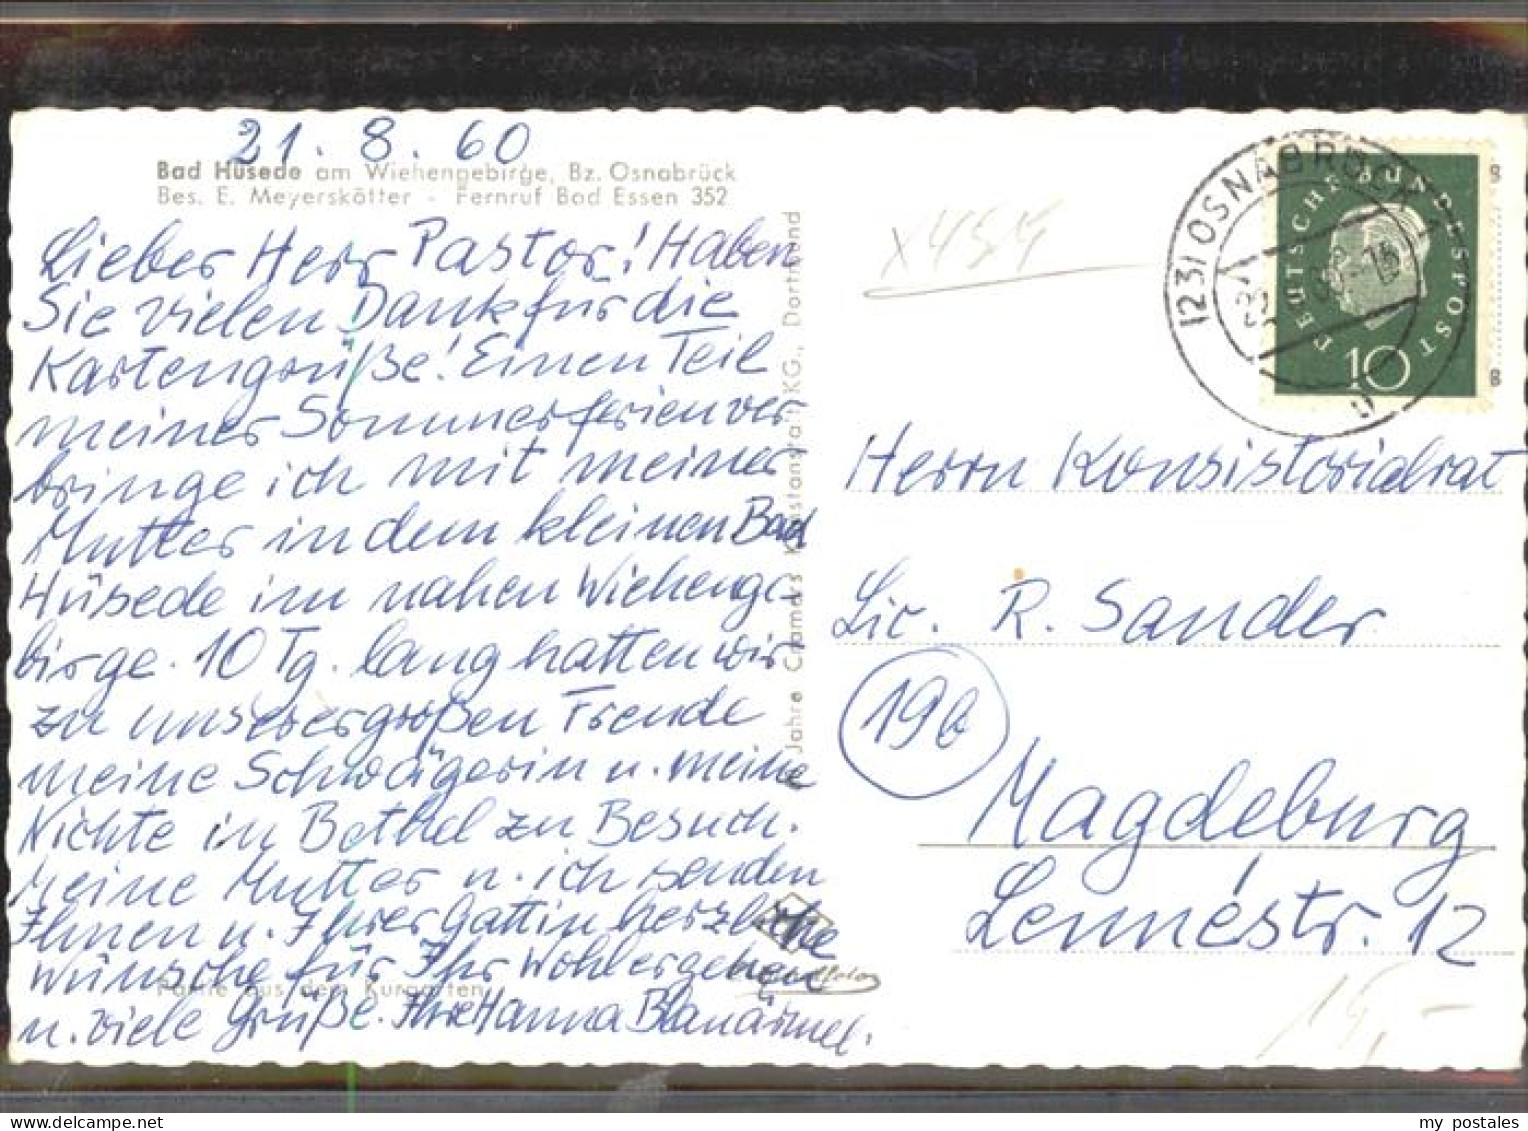 21. 8. 60
Bad Hüsede am Wiehengebirge, Bz. Osnabrück
Bes. E. Meyerskötter - Fernruf Bad Essen 352
Lieber Herr Pastor! Haben
Sie vielen Dank für die
Kartengrüße! Einen Teil
meiner Sommerferien ver
bringe ich mit meiner
Mutter in dem kleinen Bad
Hüsede im nahen Wiehenge-
birge. 10 Tg. lang hatten wir
zu unserer großen Freude
meine Schwägerin u. meine
Nichte in Bethel zu Besuch.
Meine Mutter u. ich senden
Ihnen u. Ihrer Gattin herzliche
Wünsche für Ihr Wohlergehen
u. viele Grüße. Ihre Hanna Blanärmel.
Partie aus dem Kurgarten
Jahre Cramers Kunstanstalt KG., Dortmund
X454
1231 OSNABRÜCK
DEUTSCHE BUNDESPOST
10
Herrn Konsistorialrat
Lic. R. Sander
19b
Magdeburg
Lennéstr. 12
15,-
my postales